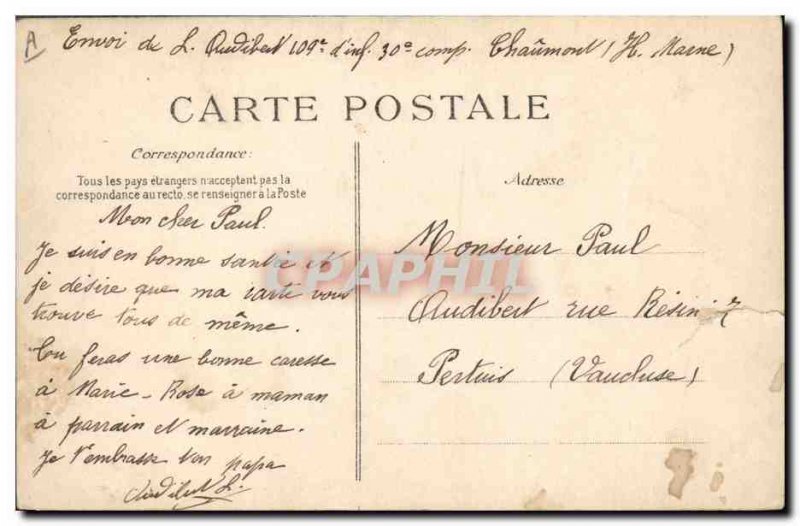 A
Envoi de L. Audibert 109e d'inf. 30e comp. Chaûmont (H. Marne)
CARTE POSTALE
Correspondance:
Tous les pays étrangers n'acceptent pas la
correspondance au recto, se renseigner à la Poste
Adresse
Mon cher Paul.
Je suis en bonne santé et
je désire que ma carte vous
trouve tous de même.
Tu feras une bonne caresse
à Marie-Rose à maman
à parrain et marraine.
Je t'embrasse ton papa
Audibert L.
Monsieur Paul
Audibert rue Résini 7
Pertuis (Vaucluse)
CPAPHIL